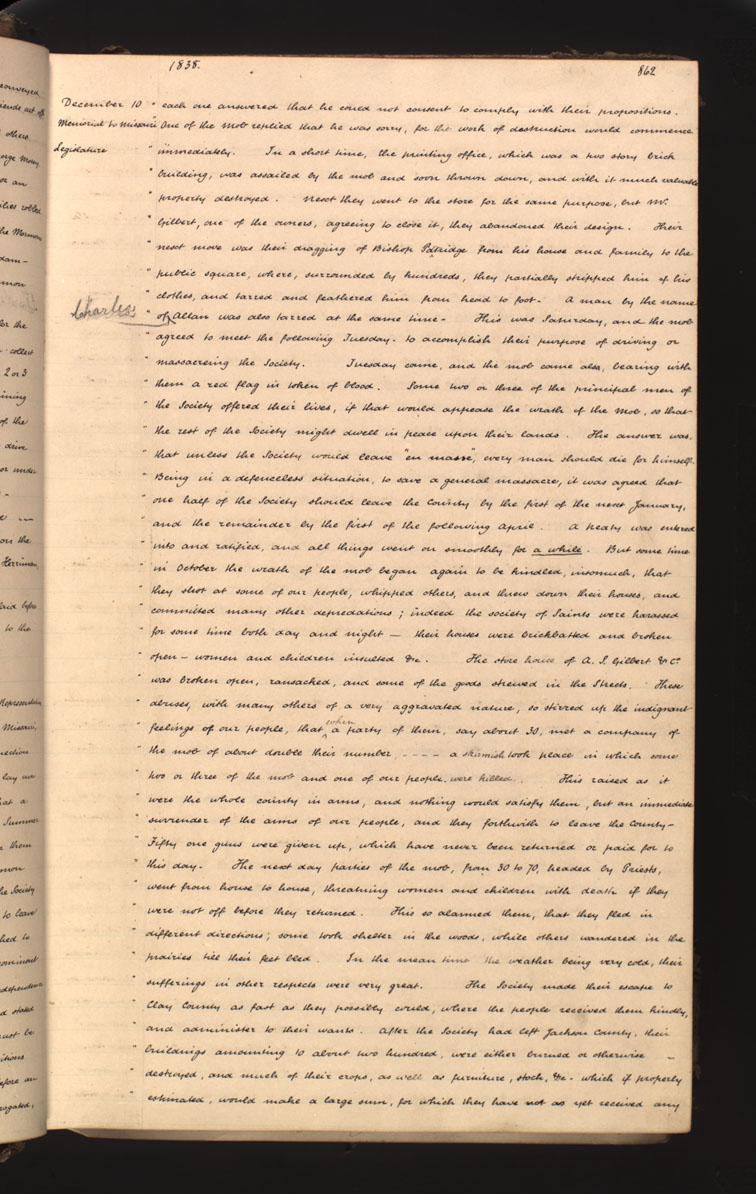 1838.
862
December 10 " each one answered that he could not consent to comply with their propositions.
Memorial to Missouri One of the mob replied that he was sorry, for the work of destruction would commence
Legislature " immediately. In a short time, the printing office, which was a two story brick
" building, was assailed by the mob and soon thrown down, and with it much valuable
" property destroyed. Next they went to the store for the same purpose, but Mr.
" Gilbert, one of the owners, agreeing to close it, they abandoned their design. Their
" next move was their dragging of Bishop Partridge from his house and family to the
" public square, where, surrounded by hundreds, they partially stripped him of his
" clothes, and tarred and feathered him from head to foot. A man by the name
Charles " of Allan was also tarred at the same time. This was Saturday, and the mob
" agreed to meet the following Tuesday. to accomplish their purpose of driving or
" massacreing the Society. Tuesday came, and the mob came also, bearing with
" them a red flag in token of blood. Some two or three of the principal men of
" the Society offered their lives, if that would appease the wrath of the mob, so that
" the rest of the Society might dwell in peace upon their lands. The answer was,
" that unless the Society would leave "en masse", every man should die for himself.
" Being in a defenceless situation, to save a general massacre, it was agreed that
" one half of the Society should leave the County by the first of the next January,
" and the remainder by the first of the following April. A treaty was entered
" into and ratified, and all things went on smoothly for a while. But some time
" in October the wrath of the mob began again to be kindled, insomuch, that
" they shot at some of our people, whipped others, and threw down their houses, and
" committed many other depredations; indeed the society of Saints were harassed
" for some time both day and night — their houses were brickbatted and broken
" open – women and children insulted &c. The store house of A. S. Gilbert & Co
" was broken open, ransacked, and some of the goods strewed in the Streets. These
" abuses, with many others of a very aggravated nature, so stirred up the indignant
" feelings of our people, that when a party of them, say about 30, met a company of
" the mob of about double their number, ---- a skirmish took place in which some
" two or three of the mob and one of our people, were killed. This raised as it
" were the whole county in arms, and nothing would satisfy them, but an immediate
" surrender of the arms of our people, and they forthwith to leave the County –
" Fifty one guns were given up, which have never been returned or paid for to
" this day. The next day parties of the mob, from 30 to 70, headed by Priests,
" went from house to house, threatning women and children with death if they
" were not off before they returned. This so alarmed them, that they fled in
" different directions; some took shelter in the woods, while others wandered in the
" prairies till their feet bled. In the mean time the weather being very cold, their
" sufferings in other respects were very great. The Society made their escape to
" Clay County as fast as they possibly could, where the people received them kindly,
" and administer to their wants. After the Society had left Jackson County, their
" buildings amounting to about two hundred, were either burned or otherwise –
" destroyed, and much of their crops, as well as furniture, stock, &c. which if properly
" estimated, would make a large sum, for which they have not as yet received any